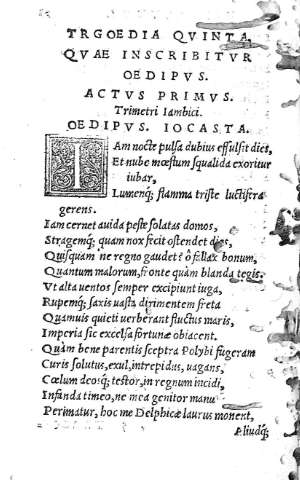 TRGOEDIA QVINTA
QVAE INSCRIBITVR
OEDIPVS.
ACTVS PRIMVS.
Trimetri Iambici.
OEDIPVS. IOCASTA.
IAm nocte pulsa dubius effulsit dies,
Et nube mœstum squalida exoritur
iubar,
Lumenq; flamma triste luctifica
gerens.
Iam cernet auida peste solatas domos,
Stragemq; quam nox fecit ostendet dies,
Quisquám ne regno gaudet? ô fallax bonum,
Quantum malorum, fronte quàm blanda tegis.
Vt alta uentos semper excipiunt iuga,
Rupemq; saxis uasta dirimentem freta
Quamuis quieti uerberant fluctus maris,
Imperia sic excelsa fortunæ obiacent.
Quàm bene parentis sceptra Polybi fugeram
Curis solutus, exul, intrepidus, uagans,
Cœlum deosq; testor, in regnum incidi,
Infanda timeo, ne mea genitor manu
Perimatur, hoc me Delphicæ laurus monent,
Aliudq;